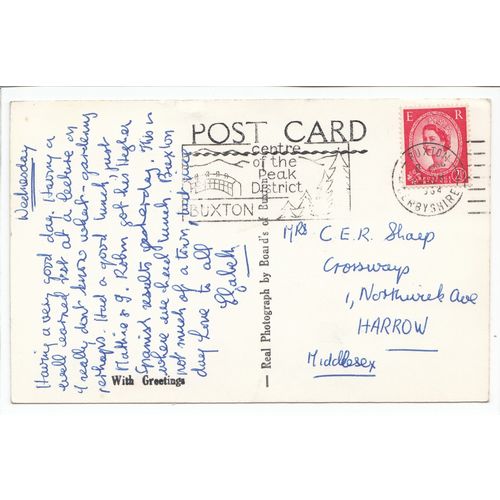 POST CARD
E R
BUXTON
DERBYSHIRE
centre
of the
Peak
District
BUXTON
Wednesday
Having a very good day. Having a
well earned rest at a lecture on
I really don't know what - gardening
perhaps. Had a good lunch just
Mathie & I. Robin got his Higher
Spanish results yesterday. This is
where we had lunch. Buxton
not much of a town, but nice
day Love to all
With Greetings
— Real Photograph by Board's of Buxton —
Mrs C.E.R. Sharp
Crossways
1, Northwick Ave
HARROW
Middlesex